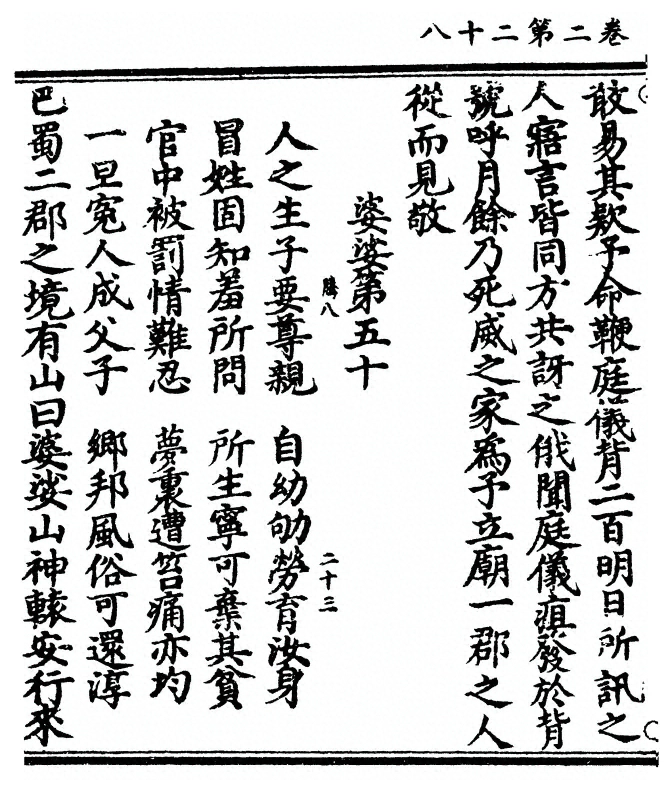 卷二第二十八
敢易其欺予命鞭庭儀背二百明日所訊之
人寤言皆同方共訝之俄聞庭儀疽發於背
號呼月餘乃死威之家爲予立廟一郡之人
從而見敬
婆娑第五十
勝八
人之生子要尊親　自幼劬勞育汝身
二十三
冒姓固知羞所問　所生寧可棄其貧
官中被罰情難忍　夢裏遭笞痛亦均
一旦寃人成父子　鄉邦風俗可還淳
巴蜀二郡之境有山曰婆娑山神轅安行來